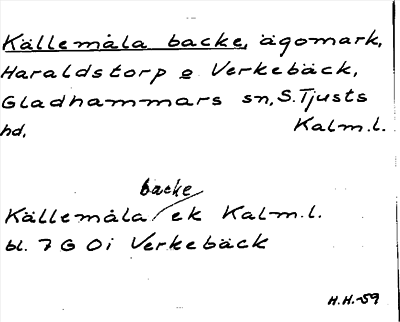 Källemåla backe, ägomark,
Haraldstorp o Verkebäck,
Gladhammars sn, S. Tjusts
hd, Kalm.l.
backe
Källemåla / ek Kalm.l.
bl. 7 G 0i Verkebäck
H.H.-59